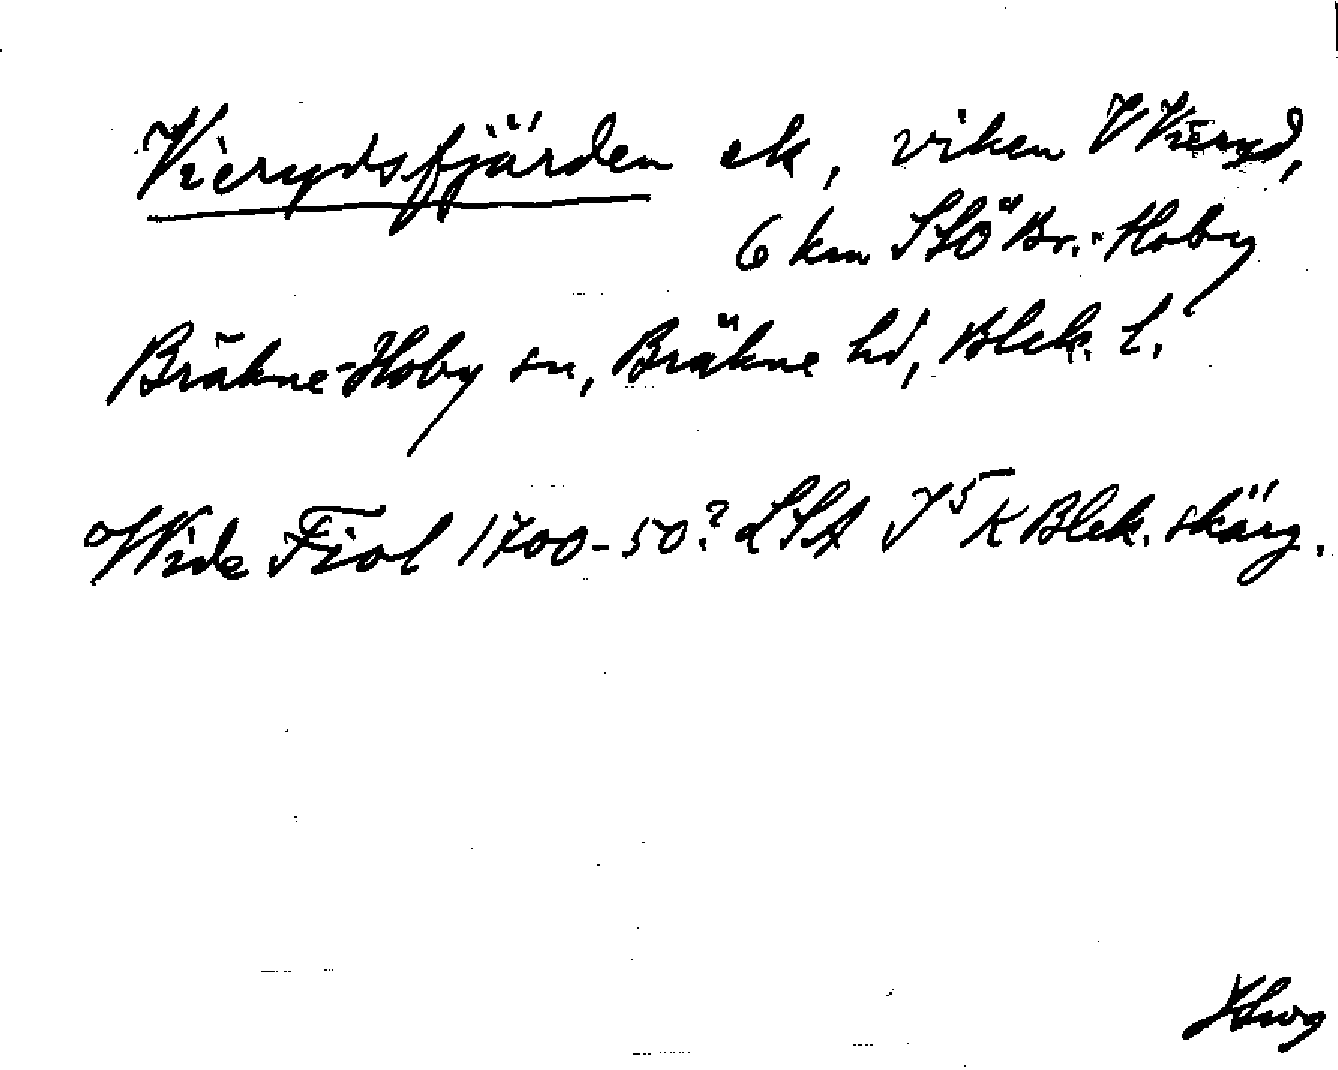 Vierydsfjärden ek, viken V Vieryd,
6 km SSÖ Br.-Hoby
Bräkne-Hoby sn, Bräkne hd, Blek. l.
Wide Fiol 1700-50? LSA J5 K Blek. skärg.